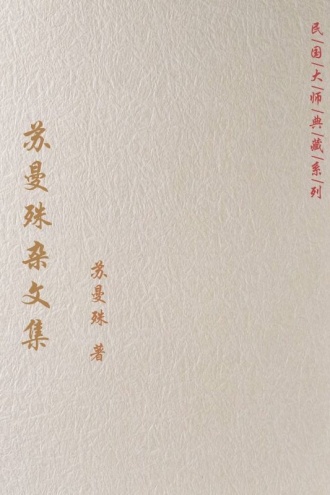 民|国|大|师|典|藏|系|列
苏曼殊杂文集
苏曼殊 著